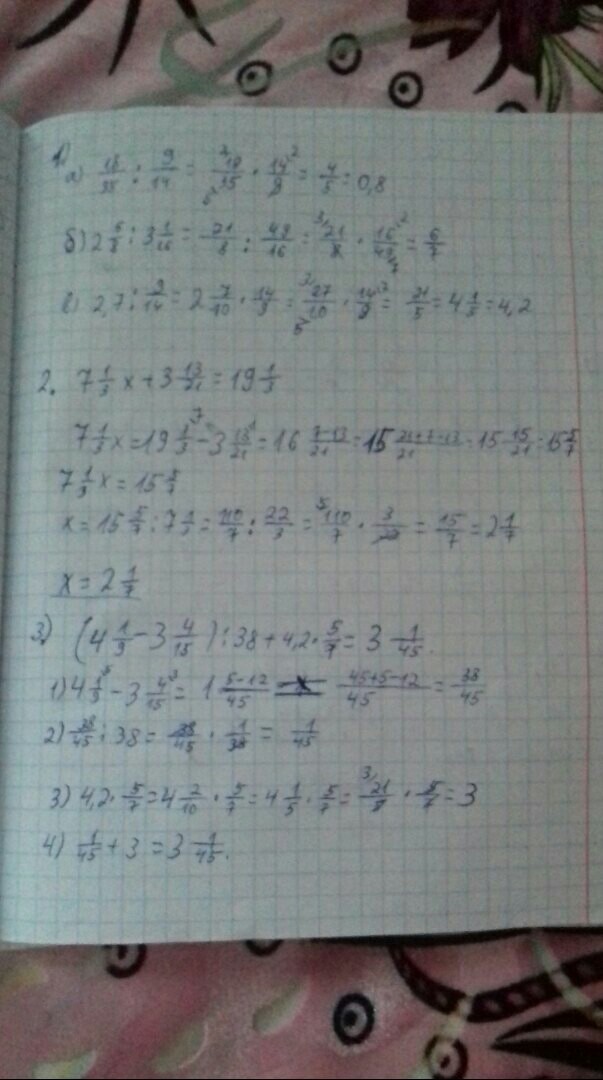 1)
а) 18/35 : 9/14 = 18/35 · 14/9 = 4/5 = 0,8
б) 2 5/8 : 3 1/16 = 21/8 : 49/16 = 21/8 · 16/49 = 6/7
в) 2,7 : 9/14 = 2 7/10 · 14/9 = 27/10 · 14/9 = 21/5 = 4 1/5 = 4,2
2. 7 1/3 x + 3 13/21 = 19 1/3
7 1/3 x = 19 1/3 - 3 13/21 = 16 7-13/21 = 15 21+7-13/21 = 15 15/21 = 15 5/7
7 1/3 x = 15 5/7
x = 15 5/7 : 7 1/3 = 110/7 : 22/3 = 110/7 · 3/22 = 15/7 = 2 1/7
x = 2 1/7
3) (4 1/9 - 3 4/15) : 38 + 4,2 · 5/7 = 3 1/45.
1) 4 1/9 - 3 4/15 = 1 5-12/45 = 45+5-12/45 = 38/45
2) 38/45 : 38 = 38/45 · 1/38 = 1/45
3) 4,2 · 5/7 = 4 2/10 · 5/7 = 4 1/5 · 5/7 = 21/5 · 5/7 = 3
4) 1/45 + 3 = 3 1/45.